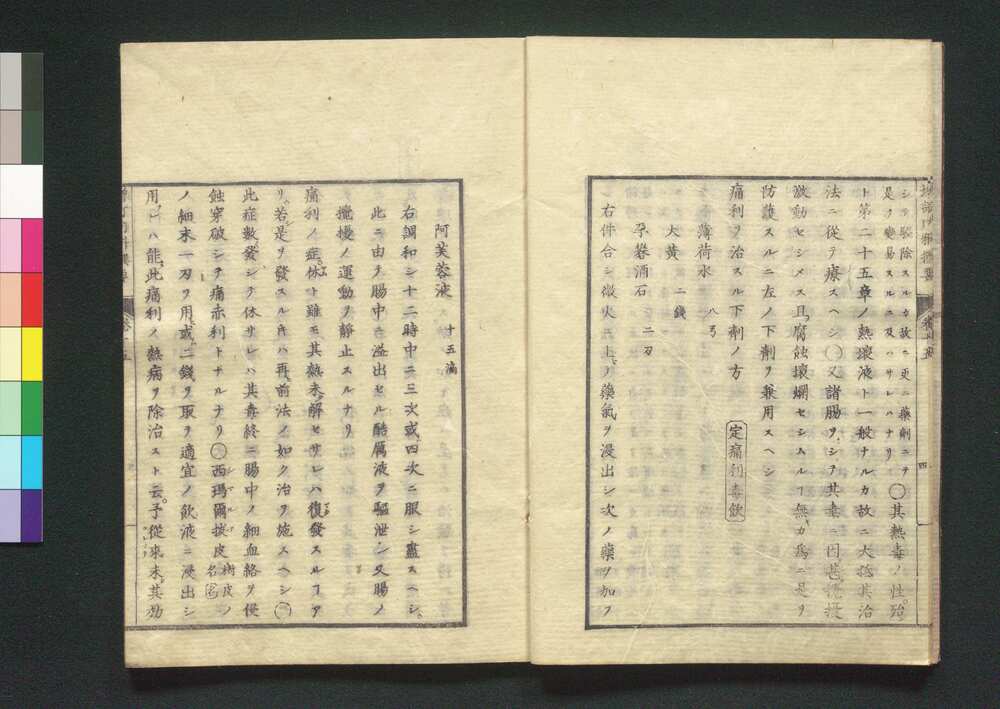 シテ驅除スルカ故ニ更ニ藥劑ニテ
是ヲ變易スルニ及ハサレハナリ
〇其熱毒ノ性殆
ト第二十五章ノ熱壞液ト一般ナルカ故ニ大抵其治
法ニ從テ療スヘシ〇又諸腸ヲシテ其毒ニ因甚攪擾
激動セシメス且腐蝕壞爛セシムルヿ無カ爲ニ是ヲ
防護スルニ左ノ下劑ヲ兼用スヘシ
痛利ヲ治スル下劑ノ方
定痛利毒飲
薄荷水 八弓
大黄 二錢
孕礬消石 二刃
右件合シ微火ニ上シテ藥氣ヲ浸出シ次ノ藥ヲ加フ
四
阿芙蓉液 十五滴
右調和シ十二時中ニ三次或四次ニ服シ盡スヘシ
此ニ由テ腸中ニ溢出セル酷厲液ヲ驅泄シ又腸ノ
攪擾ノ運動ヲ靜止スルナリ
痛利ノ症休ト雖モ其熱未解セサレハ復發スルヿア
リ若是ヲ發スル片ハ再前法ノ如ク治ヲ施スヘシ〇
此症數發シテ休サレハ其毒終ニ腸中ノ細血絡ヲ侵
蝕穿破シテ痛赤利トナルナリ〇西瑪爾拔皮樹皮ノ名
ノ細末一刃ヲ用或二錢ヲ取テ適宜ノ飲液ニ浸出シ
用レハ能此痛利ノ熱病ヲ除治スト云予從來未其効